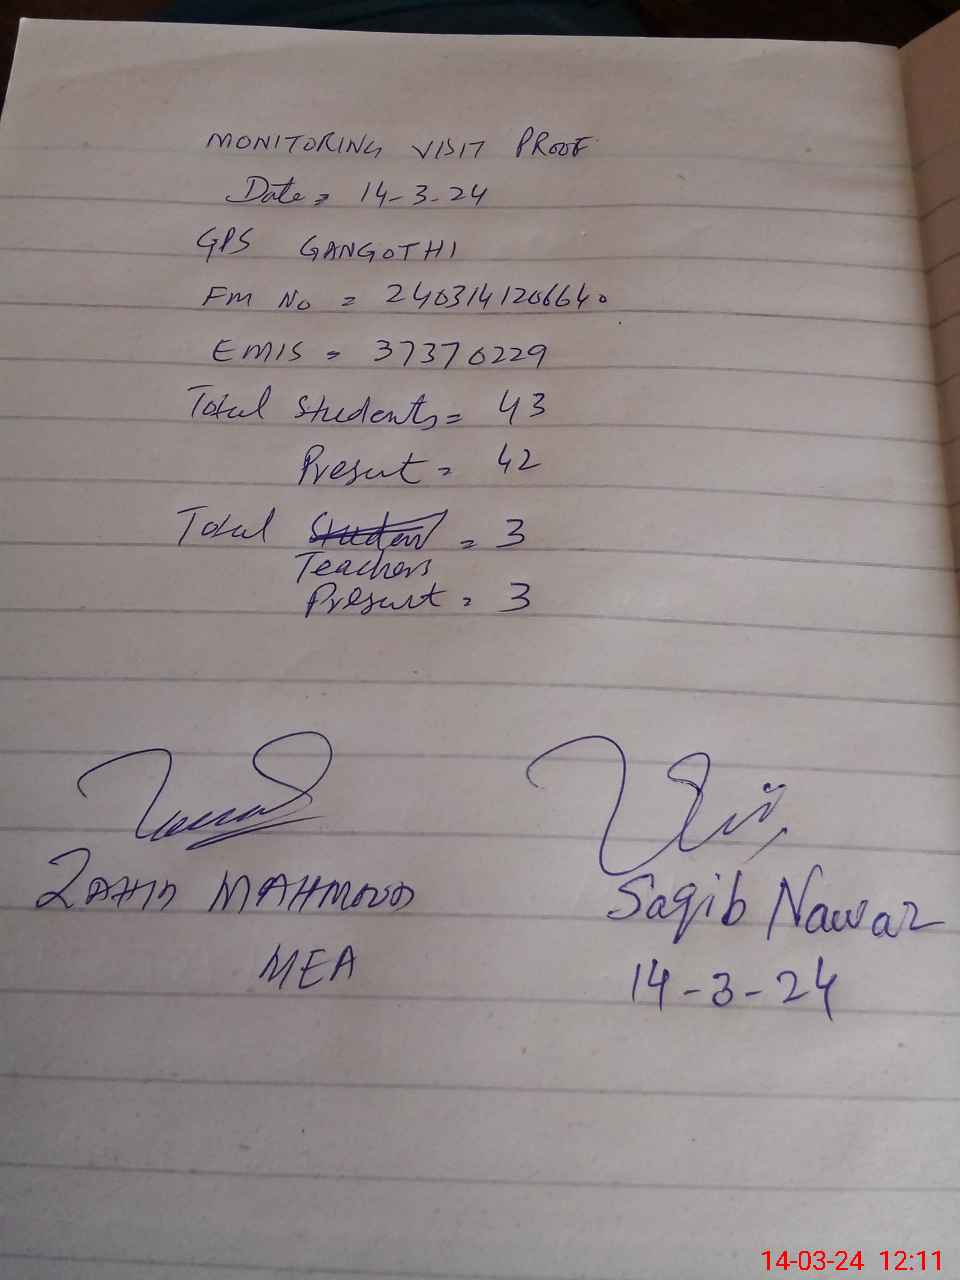 MONITORING VISIT PROOF
Date = 14-3-24
GPS GANGOTHI
Fm No = 2403141206640
EMIS = 37370229
Total Students = 43
Present = 42
Total Student = 3
Teachers
Present = 3
ZAHID MAHMOOD
Saqib Nawaz
MEA
14-3-24
14-03-24 12:11